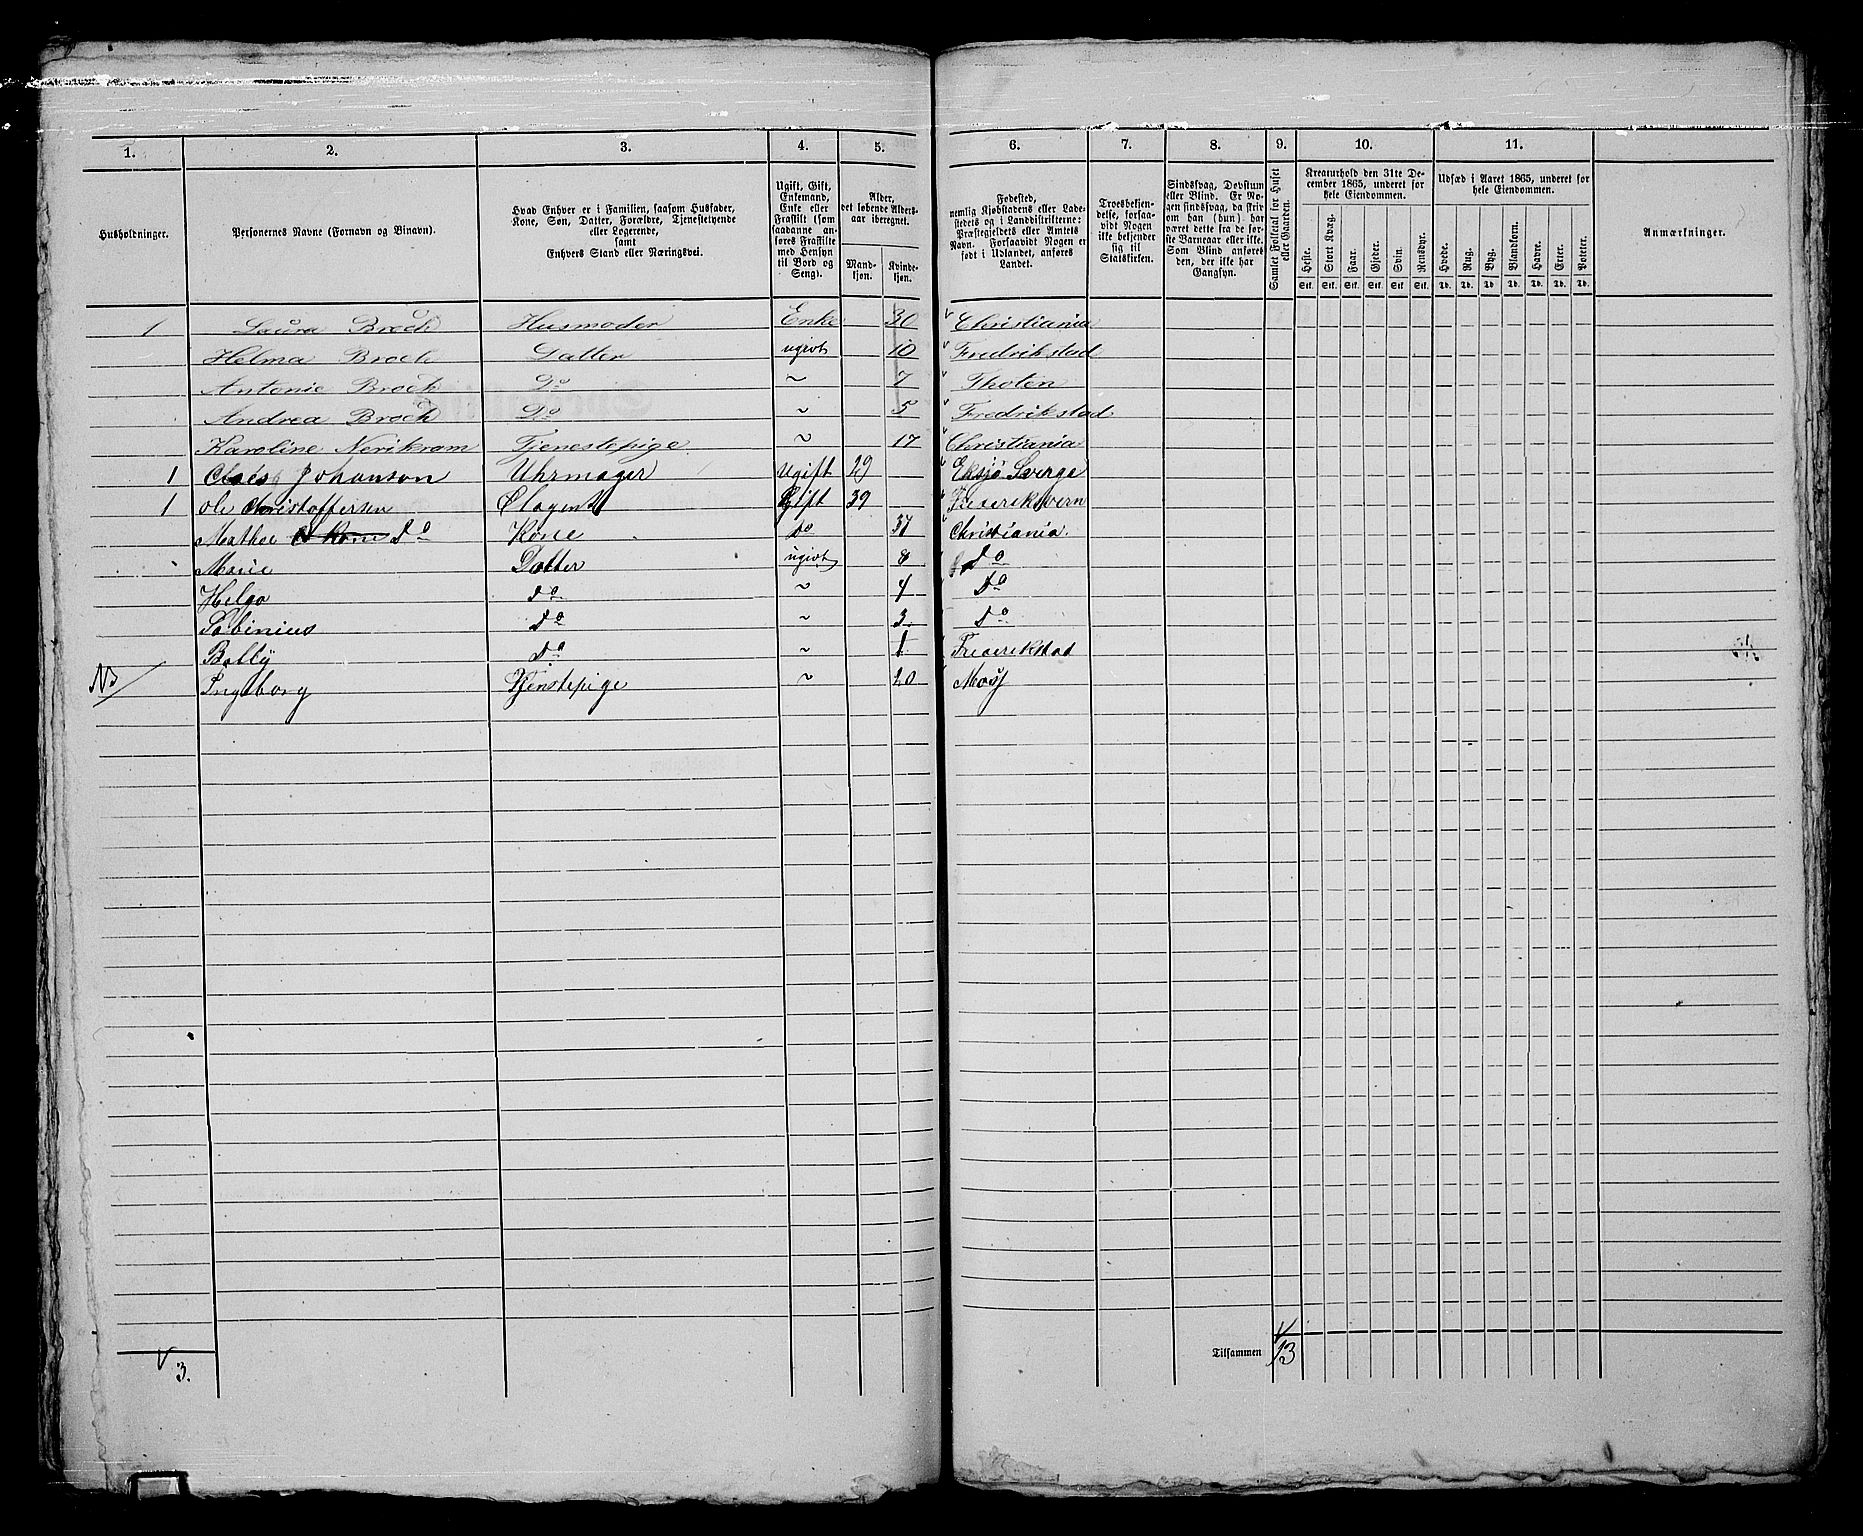 1. 2. 3. 4. 5. 6. 7. 8. 9. 10. 11.
Husholdninger.
Personernes Navne (Fornavn og Binavn).
Hvad Enhver er i Familien, saasom Husfader,
Kone, Søn, Datter, Forældre, Tjenestetyende
eller Logerende,
samt
Enhvers Stand eller Næringsvei.
Ugift, Gift,
Enkemand,
Enke eller
Fraskilt (som
saadanne an-
føres Fraskilte
med Hensyn
til Bord og
Seng).
Alder,
det løbende Alders-
aar iberegnet.
Mand-
kjøn.
Kvinde-
kjøn.
Fødested,
nemlig Kjøbstadens eller Lade-
stedets og i Landdistrikterne:
Præstegjeldets eller Amtets
Navn. Forsaavidt Nogen er
født i Udlandet, anføres
Landet.
Troesbekjen-
delse, forsaa-
vidt Nogen
ikke bekjender
sig til
Statskirken.
Sindssvag, Døvstum
eller Blind. Er No-
gen sindssvag, da skriv
om han (hun) har
været dette fra de før-
ste Barneaar eller ikke.
Som Blind anføres
den, der ikke har
Gangsyn.
Samlet Folketal for Huset
eller Gaarden.
Kreaturhold den 31te De-
cember 1865, underet for
hele Eiendommen.
Heste. Stort Kvæg. Faar. Gjeder. Svin. Rensdyr.
Stk. Stk. Stk. Stk. Stk. Stk.
Udsæd i Aaret 1865, underet for
hele Eiendommen.
Hvede. Rug. Byg. Blandkorn. Havre. Erter. Poteter.
Td. Td. Td. Td. Td. Td. Td.
Anmærkninger.
1 Laura Broch Husmoder Enke 30 Christiania
Helma Broch Datter ugivt 10 Fredrikstad
Antonie Broch Do ~ 7 Thoten
Andrea Broch Do ~ 5 Fredrikstad
Karoline Tjenestepige ~ 17 Christiania
1 Claes Johanson Uhrmager Ugift 29 Eksjø Sverge
1 Ole Christoffersen Gift 39 Frederiksvern
Mathea Do Kone do 37 Christiania
Marie Datter ugivt 8 do
Helga do ~ 4 do
Sabinius do ~ 3 do
Bolly do ~ 1 Frederikstad
NB Ingeborg Tjenstepige ~ 20 Moss
3.
Tilsammen 13